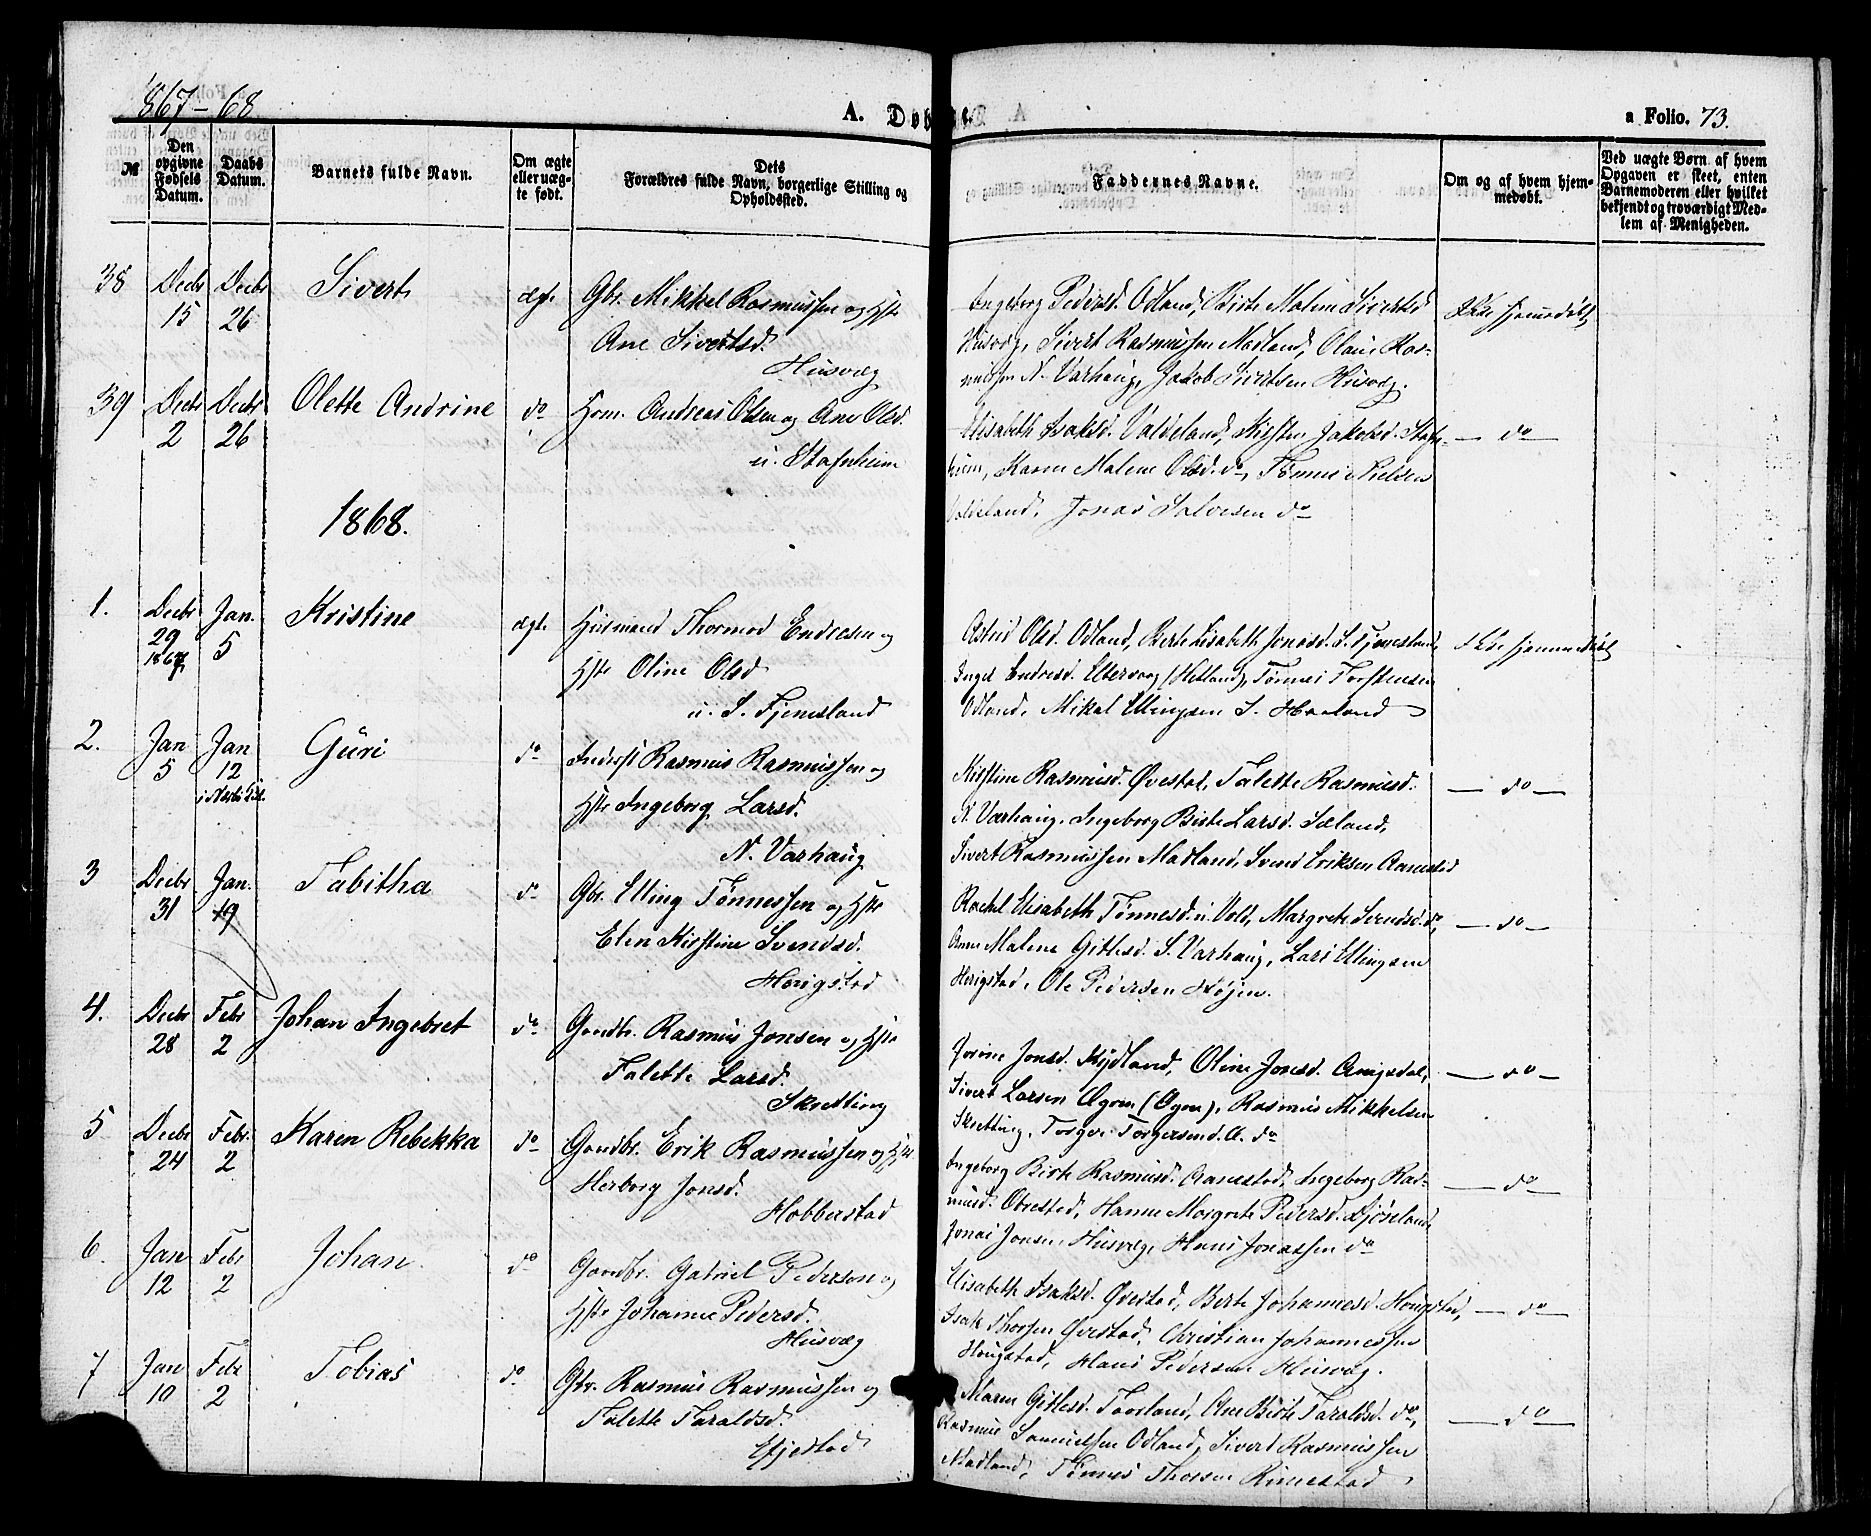 1867-68.
A. Døbte.
a Folio. 73.
№
Den opgivne Fødsels Datum.
Daabs Datum.
Barnets fulde Navn.
Om ægte eller uægte født.
Dets Forældres fulde Navn, borgerlige Stilling og Opholdssted.
Faddernes Navne.
Om og af hvem hjemmedøbt.
Ved uægte Børn af hvem Opgaven er skeet, enten Barnemoderen eller hvilket bekjendt og troværdigt Medlem af Menigheden.
38 Decbr 15 Decbr 26 Sivert ægte
Gbr. Mikkel Rasmussen og Hstr
Ane Sivertsd.
Husvæg
Ingeborg Pedersd. Odland, Birte Malene Sivertsd
Husvæg, Sivert Rasmussen Madland, Olaus Ras-
mussen N. Varhaug, Jakob Sivertsen Husvæg.
Ikke hjemmedøbt
39 Decbr 2 Decbr 26 Olette Andrine do
Hsm. Andreas Olsen og Ane Olsd.
u. Stafnheim
Elisabeth Isaksd. Valdeland, Kirsten Jakobsd. Stafn-
heim, Karen Malene Olsd. do, Tønnes Nielsen
Valdeland, Jonas Salvesen do
— do —
1868.
1. Decbr 29 1867 Jan. 5 Kristine ægte
Husmand Thormod Endresen og
Hstr Oline Olsd
u. S. Fjemesland
Astrid Olsd. Odland, Berte Lisabeth Jonasd. S. Fjemesland,
Inger Endresd. (Hetland), Tønnes Torstensen
Odland, Mikal Ellingsen S. Haaland
Ikke hjemmedøbt
2. Jan 5 Jan 12 Guri do
Inderst Rasmus Rasmussen og
Hstr Ingeborg Larsd.
N. Varhaug
Kirstine Rasmusd. Øvestad, Talette Rasmusd.
N. Varhaug, Ingeborg Birte Larsd. Sæland,
Sivert Rasmussen Madland, Svend Eriksen Aanestad
— do —
3 Decbr 31 Jan. 19 Tabitha do
Gbr. Elling Tønnessen og Hstr
Elen Kirstine Svendsd.
Hougstad
Rachel Elisabeth Tønnesd. u. Vold, Margrete Svendsd. do,
Anne Malene Gitlesd. S. Varhaug, Lars Ellingsen
Herigstad, Ole Pedersen Høyen.
— do —
4. Decbr 28 Febr 2 Johan Ingebret do
Gaardbr. Rasmus Jonsen og Hstr
Talette Larsd.
Skretting
Jorine Jonsd. Hydland, Oline Jonsd. Aarigsdal,
Sivert Larsen Øgren (Ogne), Rasmus Mikkelsen
Skretting, do
— do —
5 Decbr 24 Febr. 2 Karen Rebekka do
Gaardbr. Erik Rasmussen og Hstr
Herborg Jonsd.
Hobberstad
Ingeborg Birte Rasmusd. Aanestad, Ingeborg Ras-
musd. Obrestad, Hanne Margrete Pedersd. Njøseland,
Jonas Jonsen Husvæg, Hans Jonassen do
— do —
6. Jan 12 Febr 2 Johan. do
Gaardbr. Gabriel Pedersen og
Hstr Johanne Pedersd.
Husvæg
Elisabeth Isaksd. Øvestad, Berte Johannesd. Hougstad,
Isak Thorsen Øvestad, Christian Johannessen
Hougstad, Hans Pedersen Husvæg.
— do —
7 Jan 10 Febr 2 Tobias do
Gbr. Rasmus Rasmussen og
Talette Taraldsd.
Efjestad
Maren Gitlesd. Taarland, Ane Birte Taraldsd. do,
Rasmus Samuelsen Odland, Sivert Rasmussen
Madland, Tønnes Thorsen Rimestad
— do —